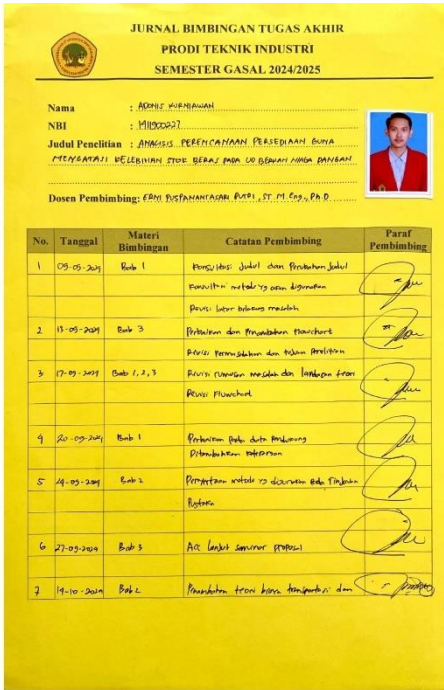 JURNAL BIMBINGAN TUGAS AKHIR
PRODI TEKNIK INDUSTRI
SEMESTER GASAL 2024/2025
Nama : ADONIS KURNIAWAN
NBI : 1411900227
Judul Penelitian : ANALISIS PERENCANAAN PERSEDIAAN GUNA
MENGATASI KELEBIHAN STOK BERAS PADA UD BERKAH NIAGA PANGAN
Dosen Pembimbing: ERNI PUSPANANTASARI PUTRI, ST M.Eng., Ph.D.
No. Tanggal Materi Bimbingan Catatan Pembimbing Paraf Pembimbing
1 09-09-2024 Bab 1 Konsultasi Judul dan Perubahan Judul
Konsultasi metode yg akan digunakan
Revisi latar belakang masalah
2 13-09-2024 Bab 3 Perbaikan dan Penambahan Flowchart
Revisi Permasalahan dan tujuan Penelitian
3 17-09-2024 Bab 1, 2, 3 Revisi rumusan masalah dan landasan teori
Revisi Flowchart
4 20-09-2024 Bab 1 Perbaikan Pada data Pendukung
Ditambahkan keterangan
5 24-09-2024 Bab 2 metode yg digunakan Pada Tinjauan
Pustaka
6 27-09-2024 Bab 3 Acc lanjut seminar proposal
7 14-10-2024 Bab 2 Penambahan teori biaya transportasi dan